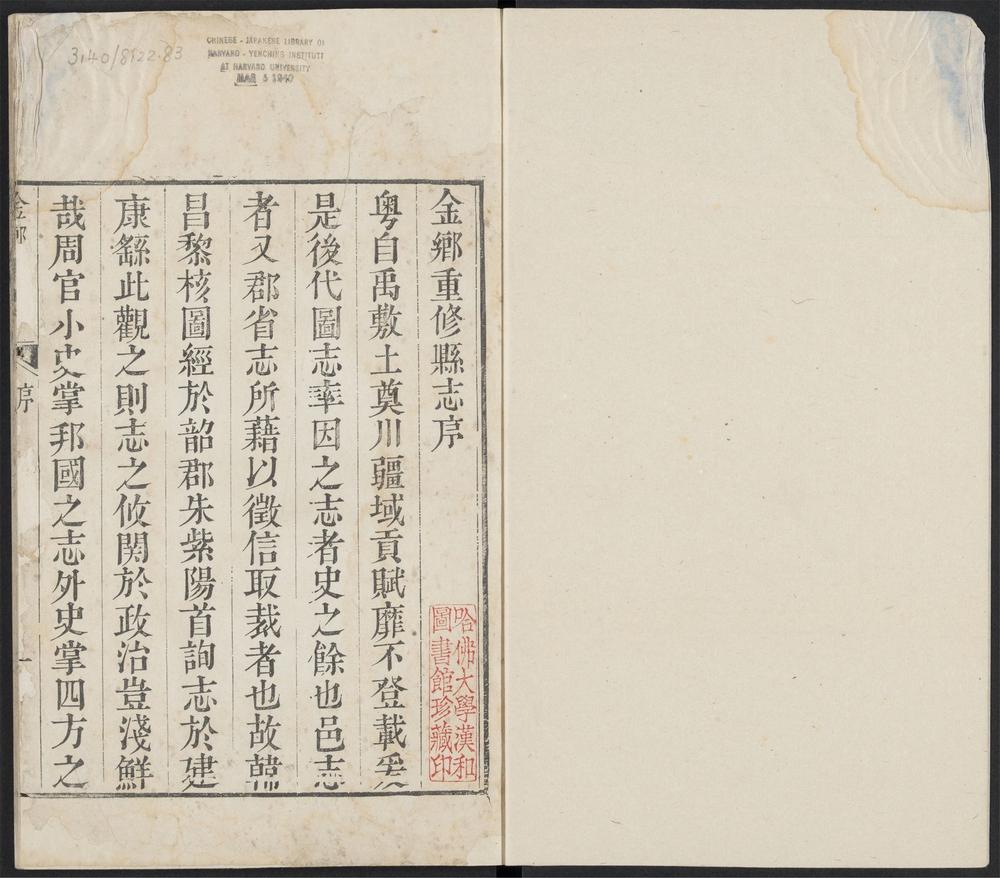 3140/8122.83
CHINESE - JAPANESE LIBRARY OF
HARVARD - YENCHING INSTITUTE
AT HARVARD UNIVERSITY
MAR 5 1940
金鄉重修縣志序
粵自禹敷土奠川疆域貢賦靡不登載爰
是後代圖志率因之志者史之餘也邑志
者又郡省志所藉以徵信取裁者也故韓
昌黎核圖經於韶郡朱紫陽首詢志於建
康繇此觀之則志之攸関於政治豈淺鮮
哉周官小史掌邦國之志外史掌四方之
哈佛大學漢和
圖書館珍藏印
金鄉
序
一